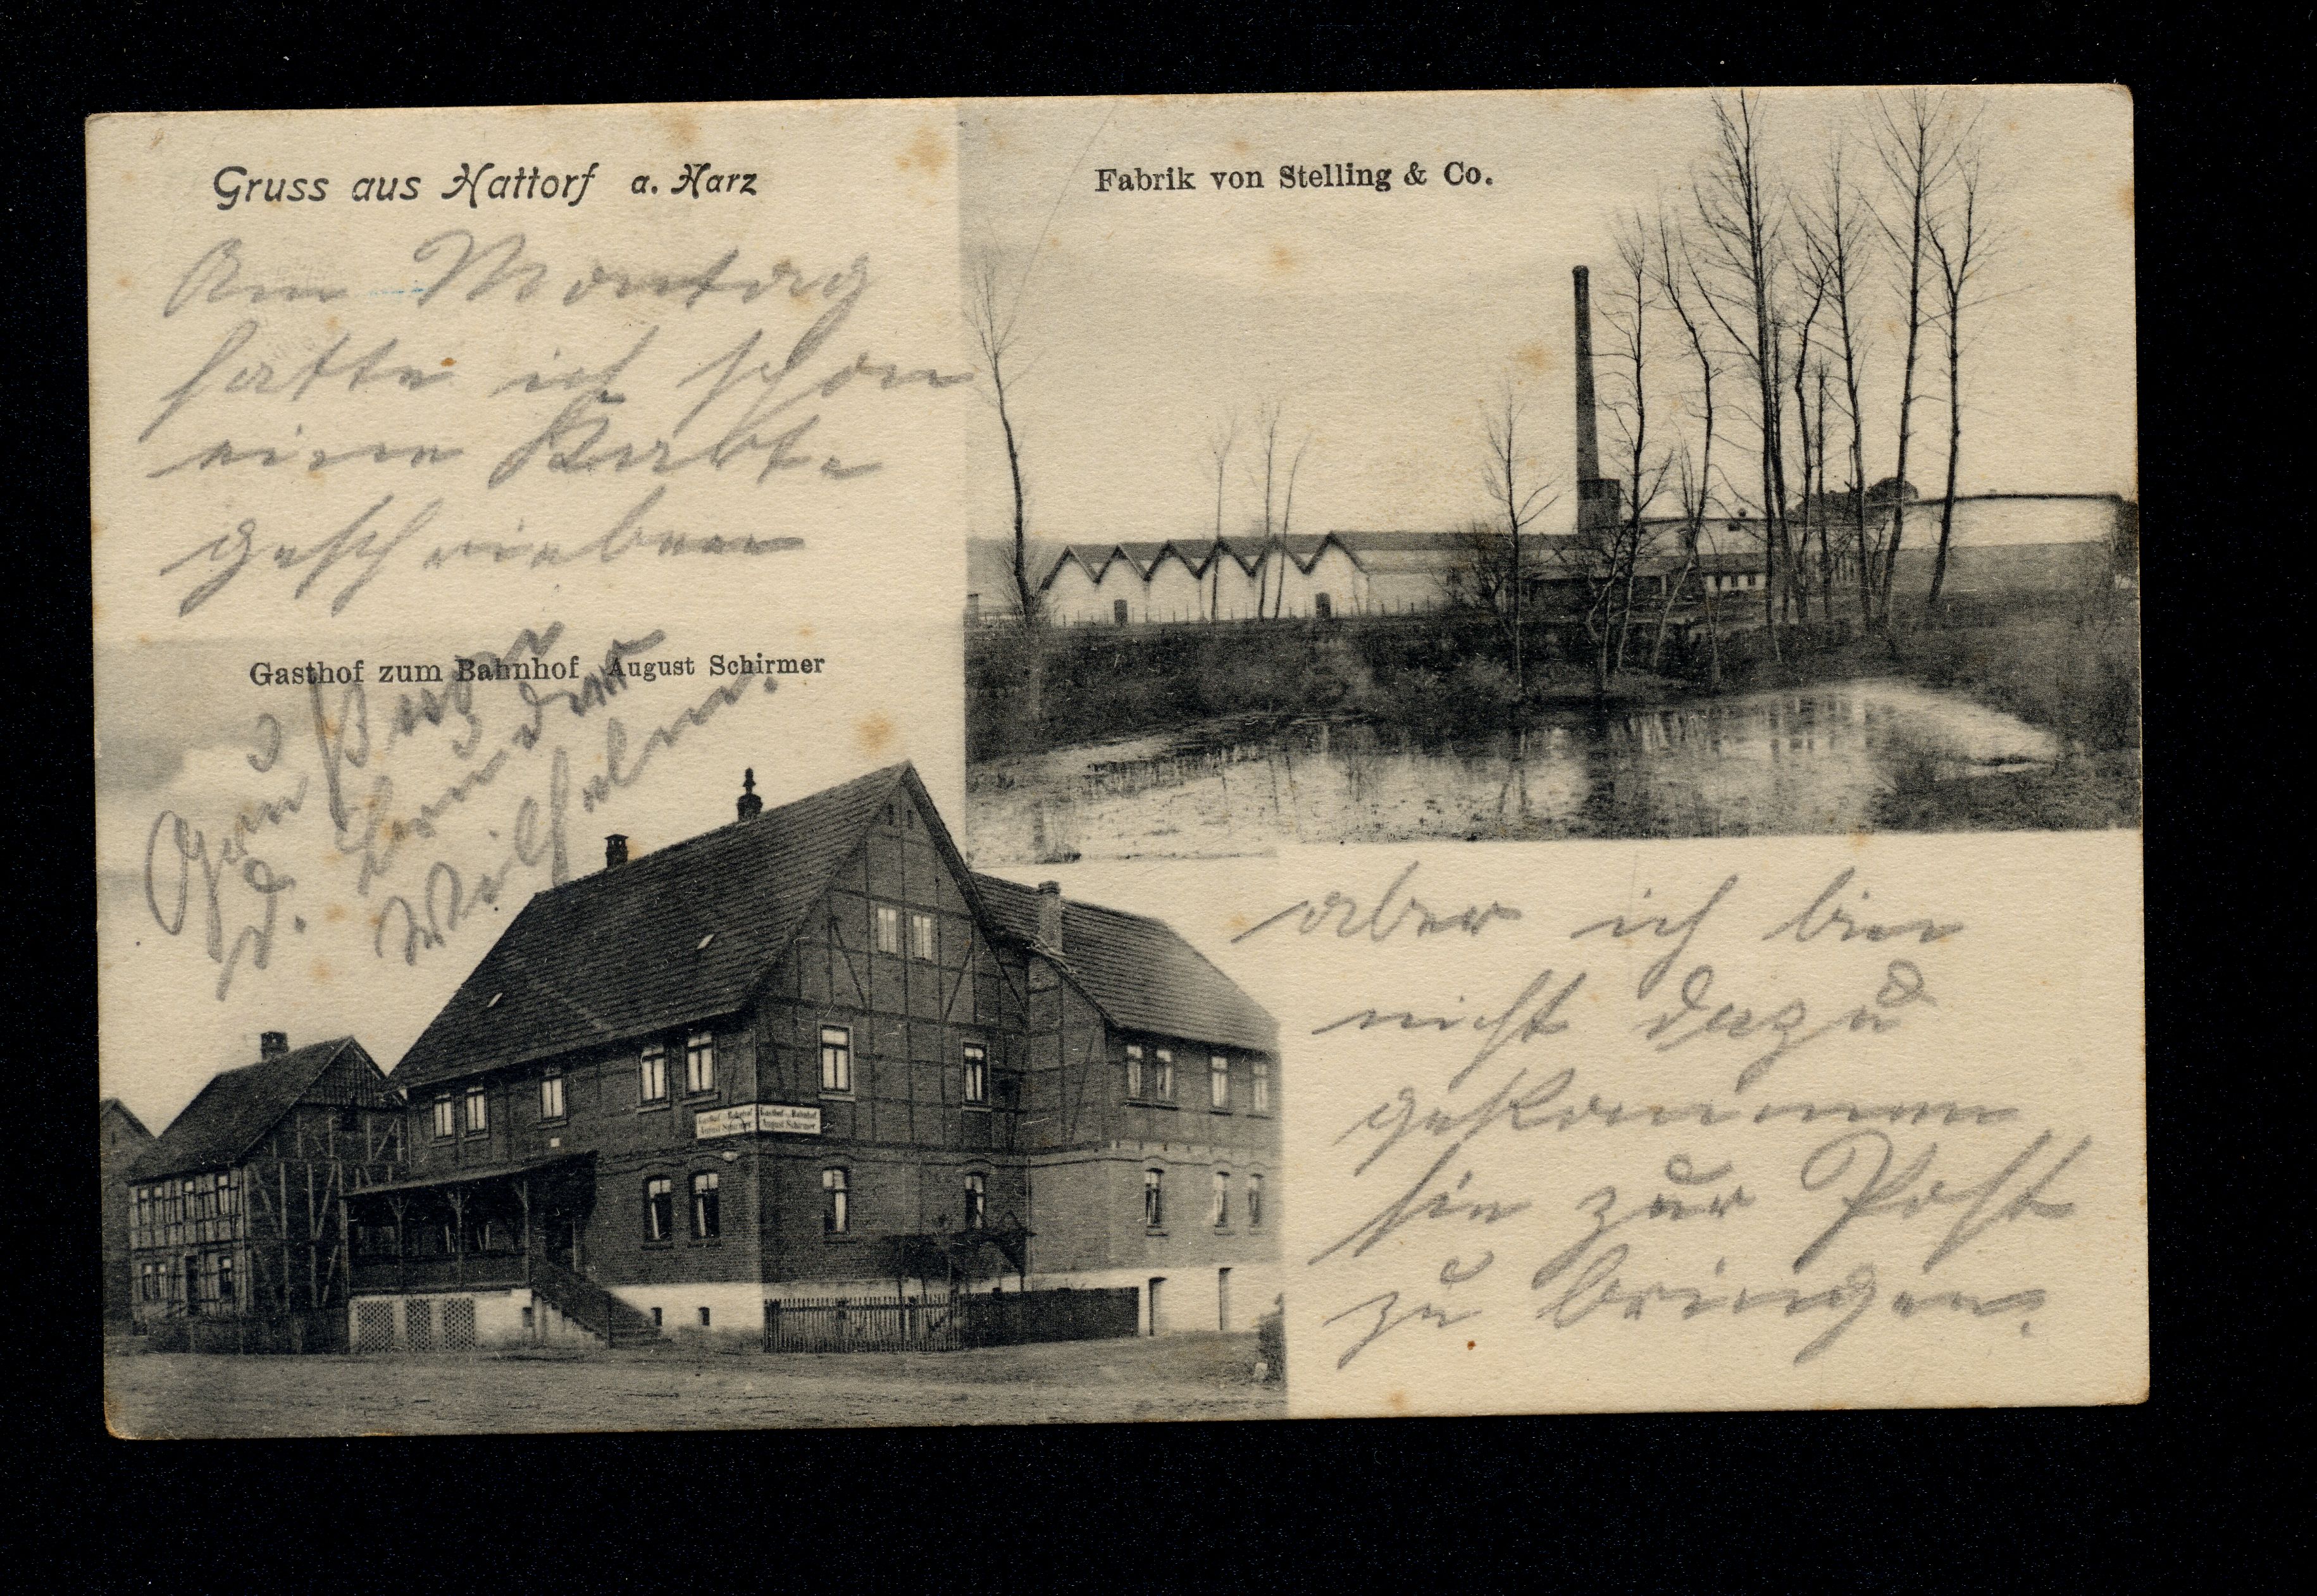 Gruss aus Hattorf a. Harz
Fabrik von Stelling & Co.
Am Montag
hatte ich schon
eine Karte
geschrieben
Gasthof zum Bahnhof August Schirmer
Wilhelm.
Gasthof Bahnhof
August Schirmer
Gasthof Bahnhof
August Schirmer
aber ich bin
nicht dazu
gekommen
sie zur Post
zu bringen.